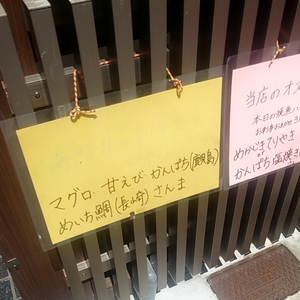 マグロ・甘えび・かんぱち(鹿児島)
めいち鯛(長崎)さんま
当店のオス
本日の焼魚
めかじきてりやき
かんぱち塩焼き